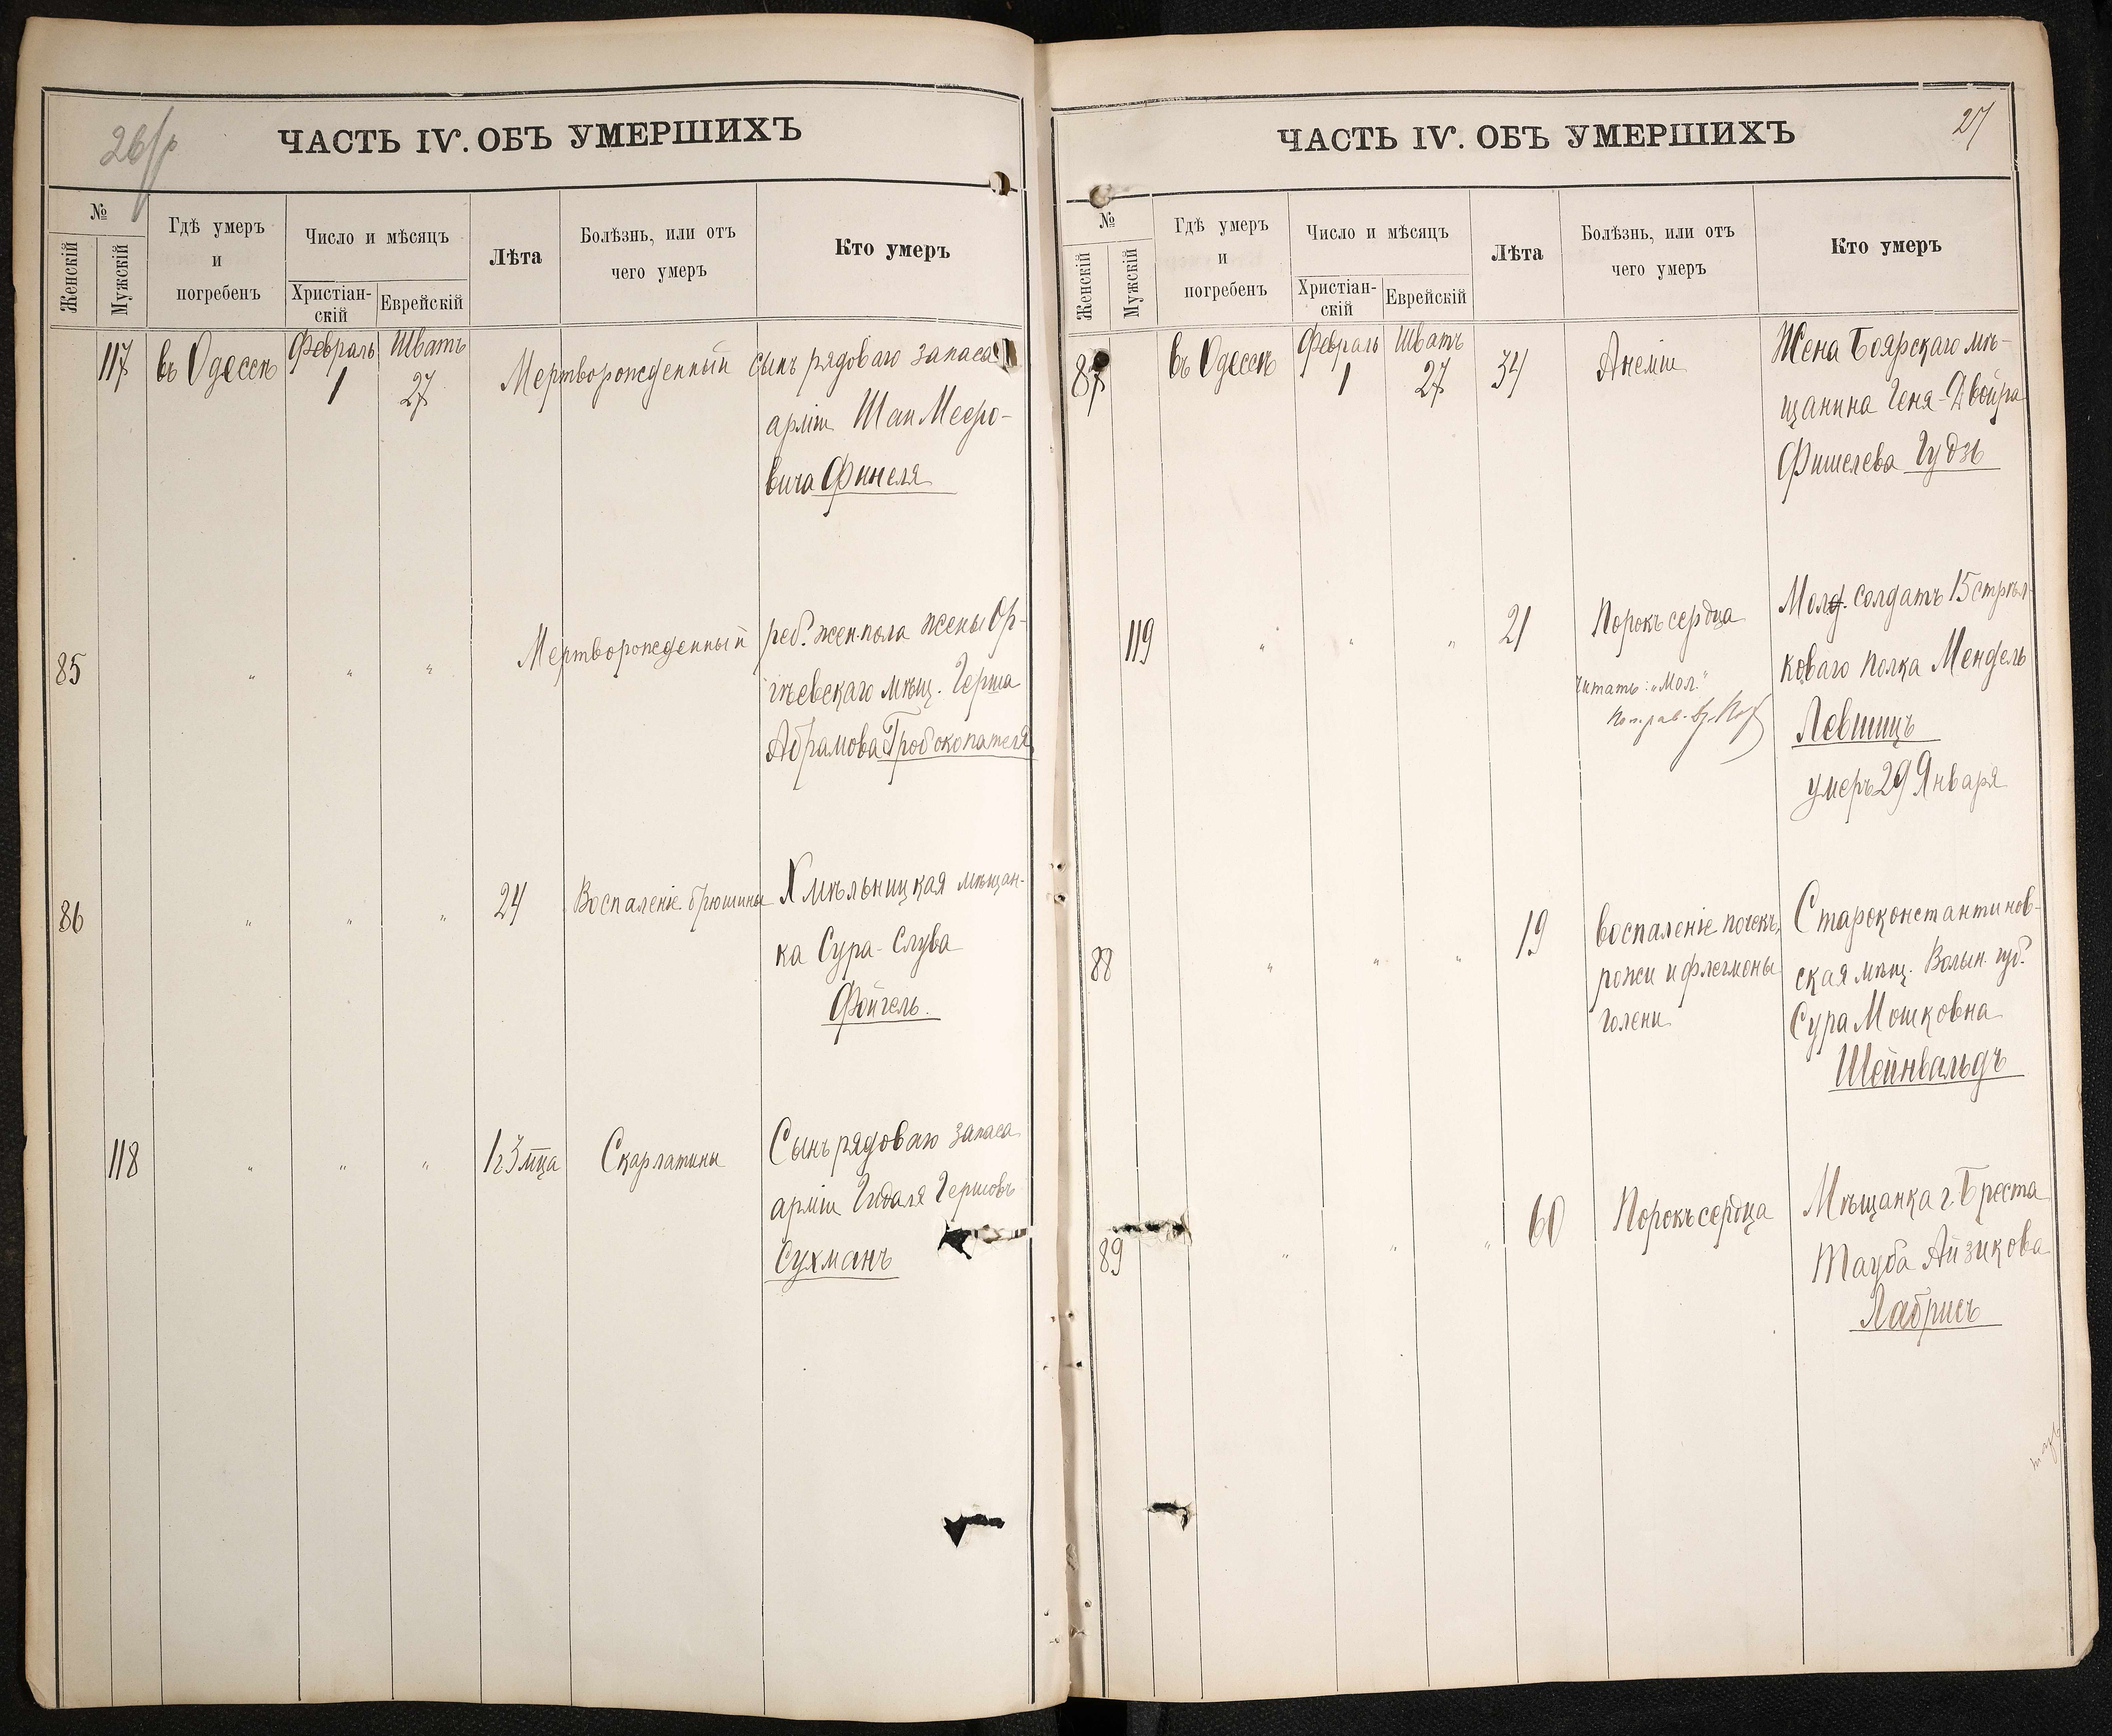 ЧАСТЬ IV. ОБЪ УМЕРШИХЪ
№
Женскій
Мужскій
Гдѣ умеръ
и
погребенъ
Число и мѣсяцъ
Христіан-
скій
Еврейскій
Лѣта
Болѣзнь, или отъ
чего умеръ
Кто умеръ
117 въ Одессѣ Февраль Шватъ
1 27
Мертворожденный сынъ рядоваго запаса
арміи Шаи Мееро-
вича Финеля
85 " " " Мертворожденный реб. жен. пола жены Ор-
гѣевскаго мѣщ. Герша
Абрамова Гробокопателя
86 " " " 24 Воспаленіе брюшины Хмѣльницкая мѣщан-
ка Сура-Слува
Фойгель.
118 " " " 1 г 3 мца Скарлатины Сынъ рядоваго запаса
арміи Гидаля Гершовъ
Сухманъ
27
ЧАСТЬ IV. ОБЪ УМЕРШИХЪ
№
Женскій
Мужскій
Гдѣ умеръ
и
погребенъ
Число и мѣсяцъ
Христіан-
скій
Еврейскій
Лѣта
Болѣзнь, или отъ
чего умеръ
Кто умеръ
87 въ Одессѣ Февраль Шватъ
1 27 34 Анеміи Жена Боярскаго мѣ-
щанина Геня-Двойра
Фишелева Гудзь
119 " " " 21 Порокъ сердца Молд. солдатъ 15 стрѣл-
коваго полка Мендель
читать: „Мол."
Левшицъ
умеръ 29 Января
88 " " " 19 воспаленіе почекъ, Староконстантинов-
рожи и флегмоны ская мѣщ. Волын. губ.
голени Сура Мошковна
Шейнвальдъ
89 " " " 60 Порокъ сердца Мѣщанка г. Бреста
Тауба Айзикова
Лабрисъ